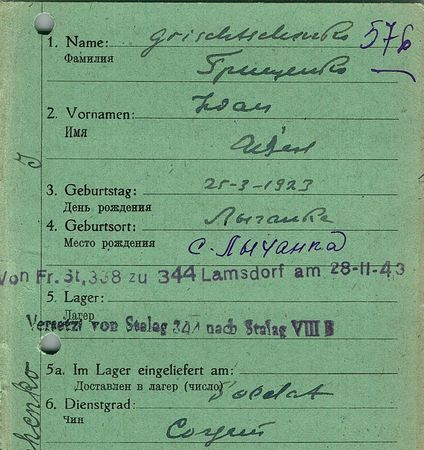 1. Name: Grischtschenko 576
Фамилия Грищенко
2. Vornamen: Iwan
Имя
3. Geburtstag: 25-3-1923
День рождения
4. Geburtsort: Лычанка
Место рождения с. Лычанка
Von Fr. St, 338 zu 344 Lamsdorf am 28-11-43
5. Lager:
Лагер
Versetzt von Stalag 344 nach Stalag VIII B
5a. Im Lager eingeliefert am:
Доставлен в лагер (число)
6. Dienstgrad: Soldat
Чин